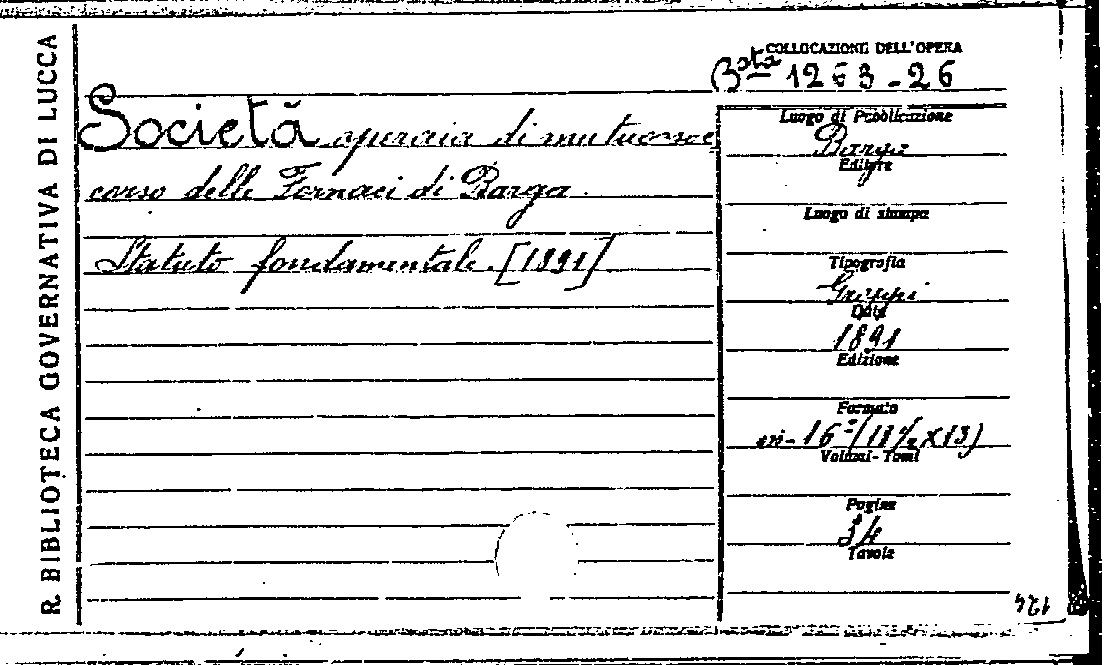 R. BIBLIOTECA GOVERNATIVA DI LUCCA
COLLOCAZIONE DELL'OPERA
Bta 1263-26
Società operaia di mutuo soc
corso delle Fornaci di Barga.
Statuto fondamentale. [1891]
Luogo di Pubblicazione
Barga
Editore
Luogo di stampa
Tipografia
Groppi
Data
1891
Edizione
Formato
in-16°
x13)
Volumi - Tomi
Pagine
Tavole